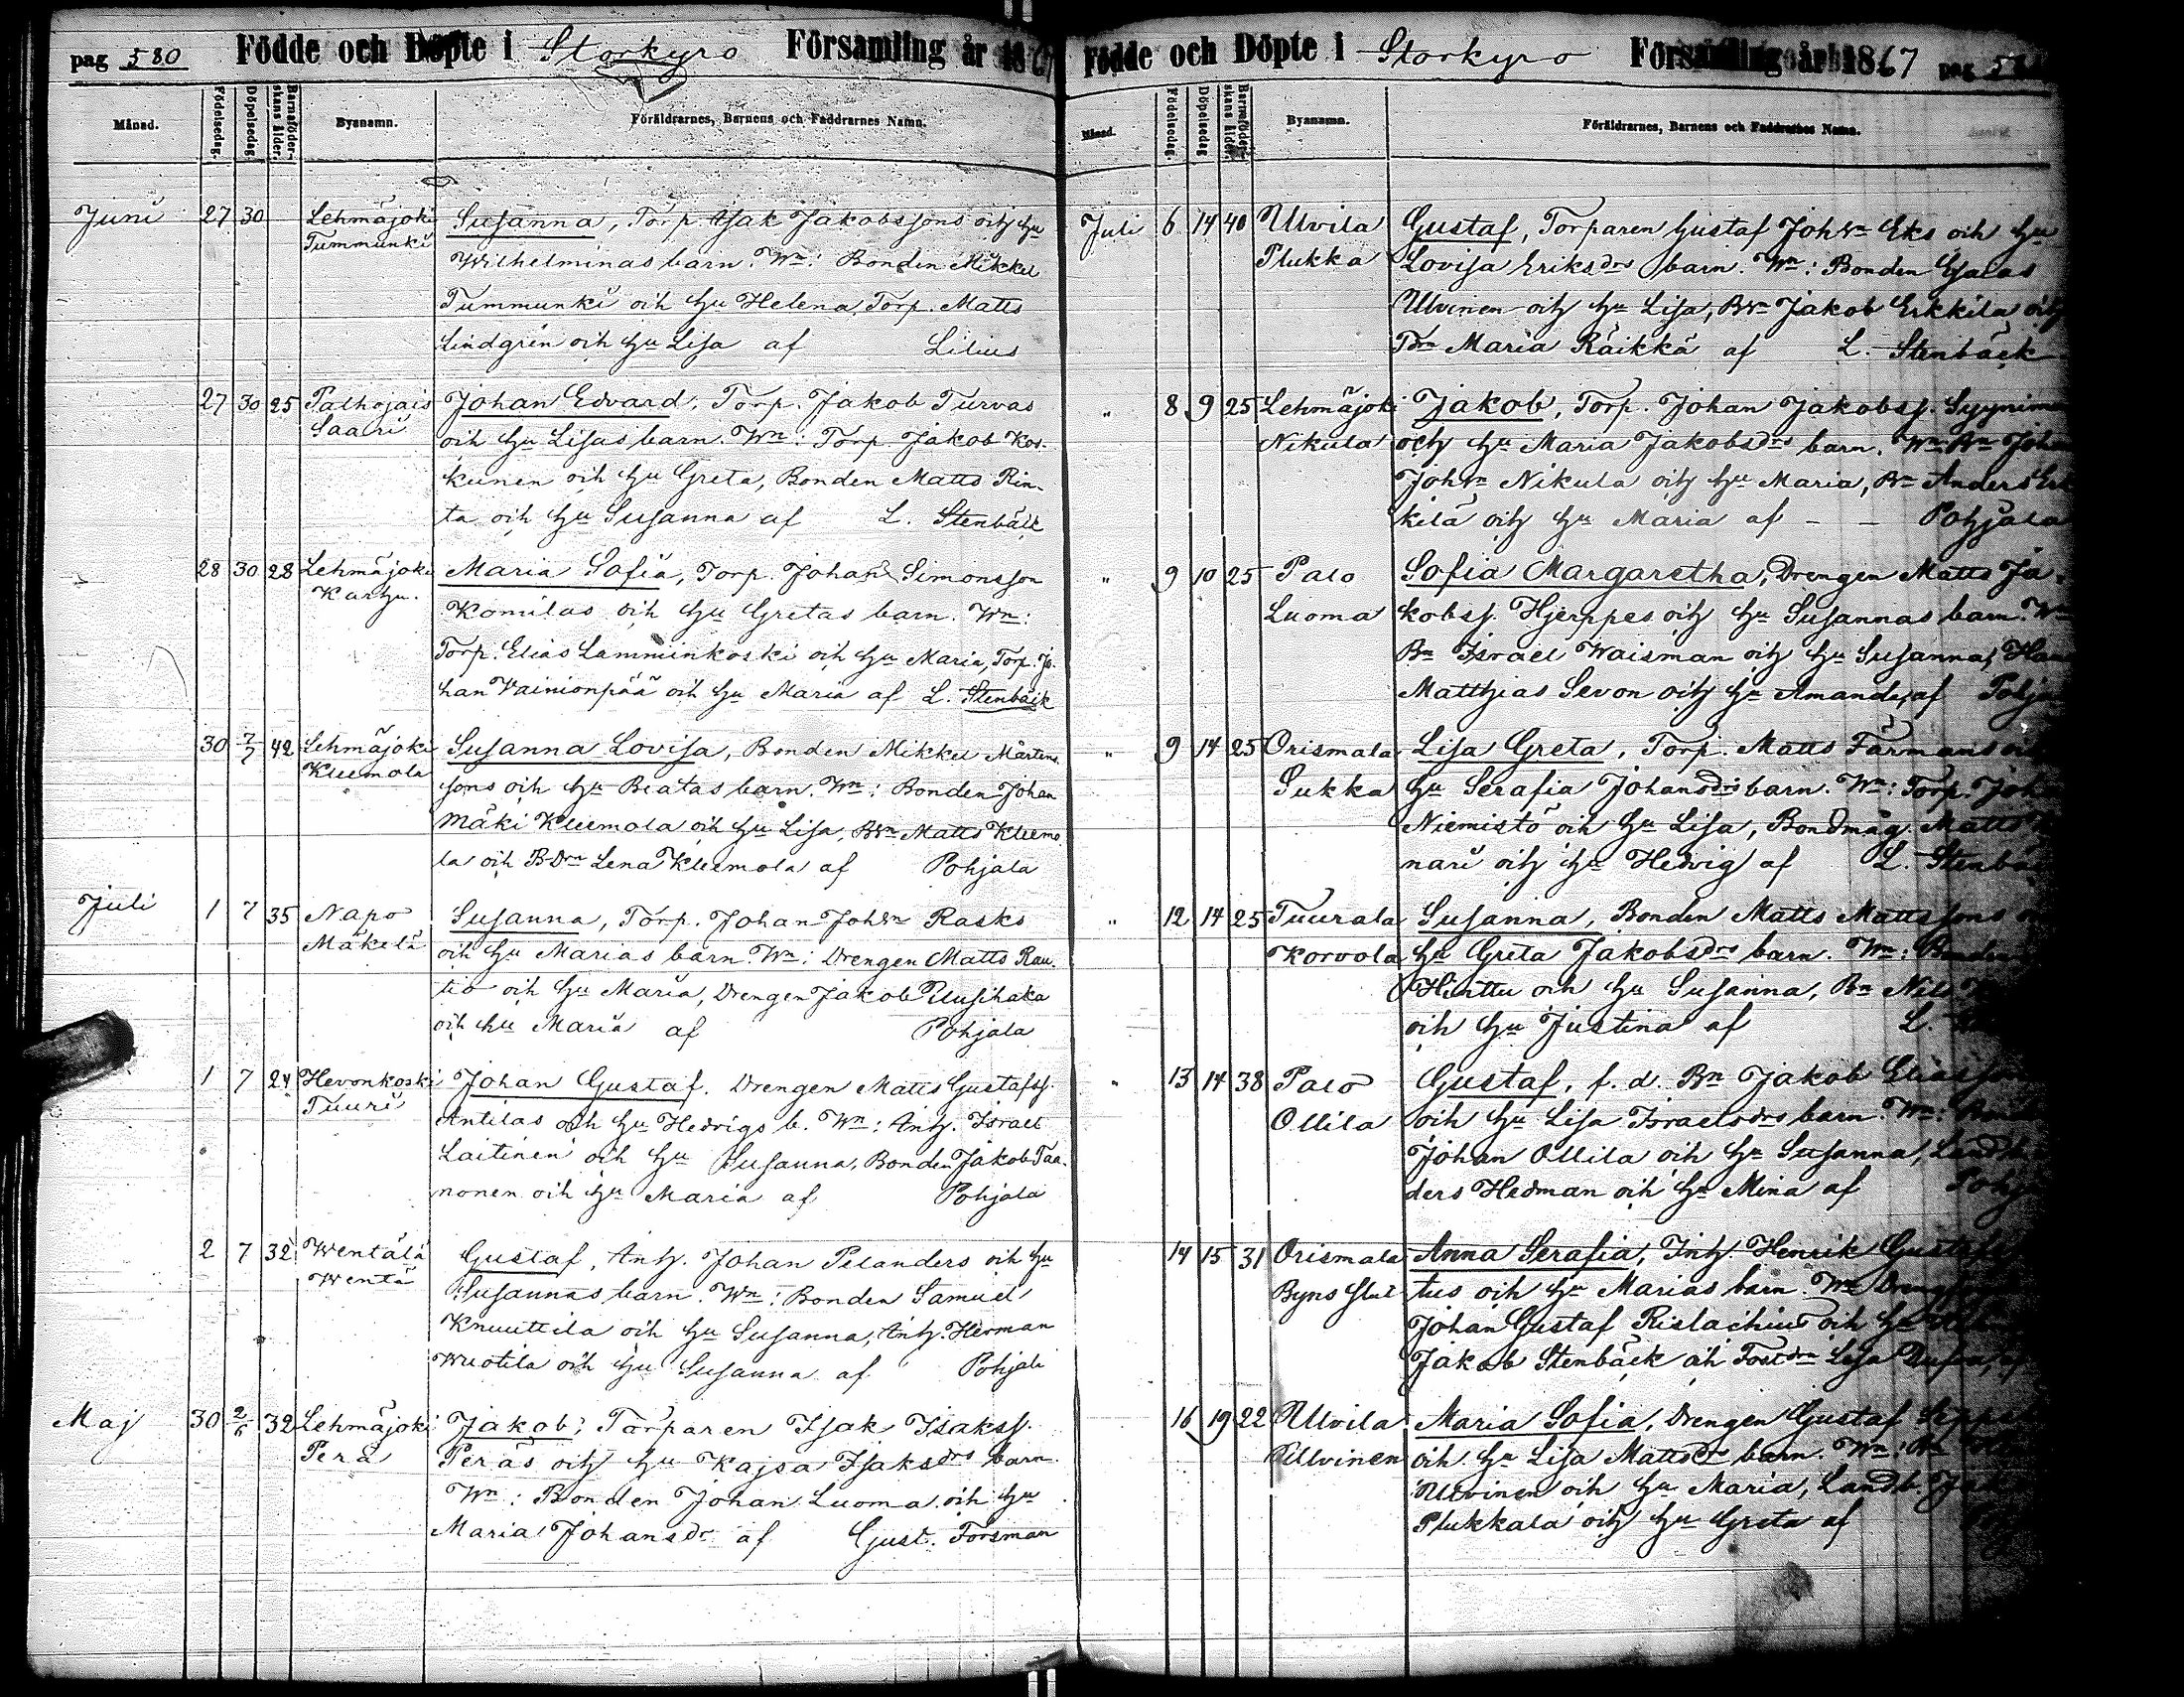 pag 580 Födde och Döpte i Storkyro Församling år 1867
Månad. Födelsedag. Döpelsedag. Barnaföderskans ålder. Bynamn. Föräldrarnes, Barnens och Faddrarnes Namn.
Juni 27 30 Lehmäjoki Susanna, Torp. Isak Jakobssons och hu
Tummunki Wilhelminas barn. Wn: Bonden Mikkel
Tummunki och hu Helena, Torp. Matts
Lindgrén och hu Lisa af Lilius
27 30 25 Palhojais Johan Edvard, Torp. Jakob Turvas
Saari och hu Lisas barn. Wn: Torp. Jakob Kos-
kinen och hu Greta, Bonden Matts Rin-
ta och hu Susanna af L. Stenbäck
28 30 28 Lehmäjoki Maria Sofia, Torp. Johan Simonsson
Karhu. Komilas och hu Gretas barn. Wn:
Torp. Elias Lamminkoski och hu Maria, Torp. Jo-
han Vainionpää och hu Maria af L. Stenbäck
30 7/7 42 Lehmäjoki Susanna Lovisa, Bonden Mikkel Mårtens
Kleemola sons och hu Beatas barn. Wn: Bonden Johan
Mäki Kleemola och hu Lisa, Bsn Matts Kleemo
la och B.drn Lena Kleemola af Pohjala
Juli 1 7 35 Napo Susanna, Torp. Johan Johsn Rasks
Mäkelä och hu Marias barn. Wn: Drengen Matts Rau-
tio och hu Maria, Drengen Jakob
och hu Maria af Pohjala
1 7 24 Hevonkoski Johan Gustaf. Drengen Matts Gustafss.
Tuuri Antilas och hu Hedvigs b. Wn: Inh. Israel
Laitinen och hu Susanna, Bonden Jakob Taa-
nonen och hu Maria af Pohjala
2 7 32 Wentälä Gustaf, Inh. Johan Pelanders och hu
Wentä Susannas barn. Wn: Bonden Samuel
Knuuttila och hu Susanna, Inh. Herman
Wuotila och hu Susanna af Pohjala
Maj 30 2/6 32 Lehmäjoki Jakob; Torparen Isak Isakss.
Perä Peräs och hu Kajsa Isaksdrs barn
Wn: Bonden Johan Luoma och hu
Maria Johansdr af Gust. Forsman
Födde och Döpte i Storkyro Församling år 1867 pag
Månad. Födelsedag. Döpelsedag Barnaföderskans ålder. Bynamn. Föräldrarnes, Barnens och Faddrarnes Namn.
Juli 6 14 40 Ulvila Gustaf, Torparen Gustaf Johsn Eks och hu
Plukka Lovisa Eriksdrs barn. Wn: Bonden Esaias
Ulvinen och hu Lisa, Bsn Jakob Erkkila och
Tdn Maria Räikkä af L. Stenbäck
" 8 9 25 Lehmäjoki Jakob, Torp. Johan Jakobss.
Nikula och hu Maria Jakobsdrs barn. Wn: Bn Johan
Johsn Nikula och hu Maria, Bn Anders Erk
kilä och hu Maria af - - Pohjala
" 9 10 25 Palo Sofia Margaretha, Drengen Matts Ja-
Luoma kobss. Hjerppes och hu Susannas barn. Wn
Bn Israel Waisman och hu Susanna,
Matthias Sevon och hu Amanda, af
" 9 14 25 Orismala Lisa Greta, Torp. Matts Färmans
Sukka hu Serafia Johansdrs barn. Wn: Torp.
Niemistö och hu Lisa, Bondmåg. Matts
nari och hu Hedvig af L.
" 12 14 25 Tuurala Susanna, Bonden Matts Mattssons
Korvola hu Greta Jakobsdrs barn. Wn: Bonden
Hinttu och hu Susanna, Bn Nils
och hu Justina af L.
" 13 14 38 Palo Gustaf, f. d. Bn Jakob Elias
Ollila och hu Lisa Israelsdrs barn. Wn:
Johan Ollila och hu Susanna,
ders Hedman och hu Mina af
14 15 31 Orismala Anna Serafia, Inh. Henrik
Byns slut tus och hu Marias barn. Wn
Johan Gustaf Rislachius och hu
Jakob Stenbäck och Lisa
16 19 22 Ulvila Maria Sofia, Drengen Gustaf
Ullvinen och hu Lisa Mattsdrs barn. Wn: Bn
Ulvinen och hu Maria, Landb.
Plukkala och hu Greta af